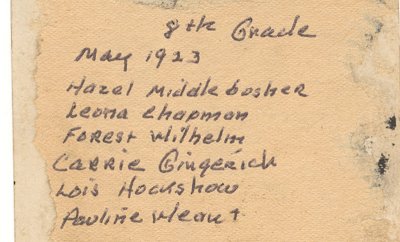 8th Grade
May 1923
Hazel Middlebosher
Leona Chapman
Forest Wilhelm
Carrie Gingerich
Lois Hockshow
Pauline